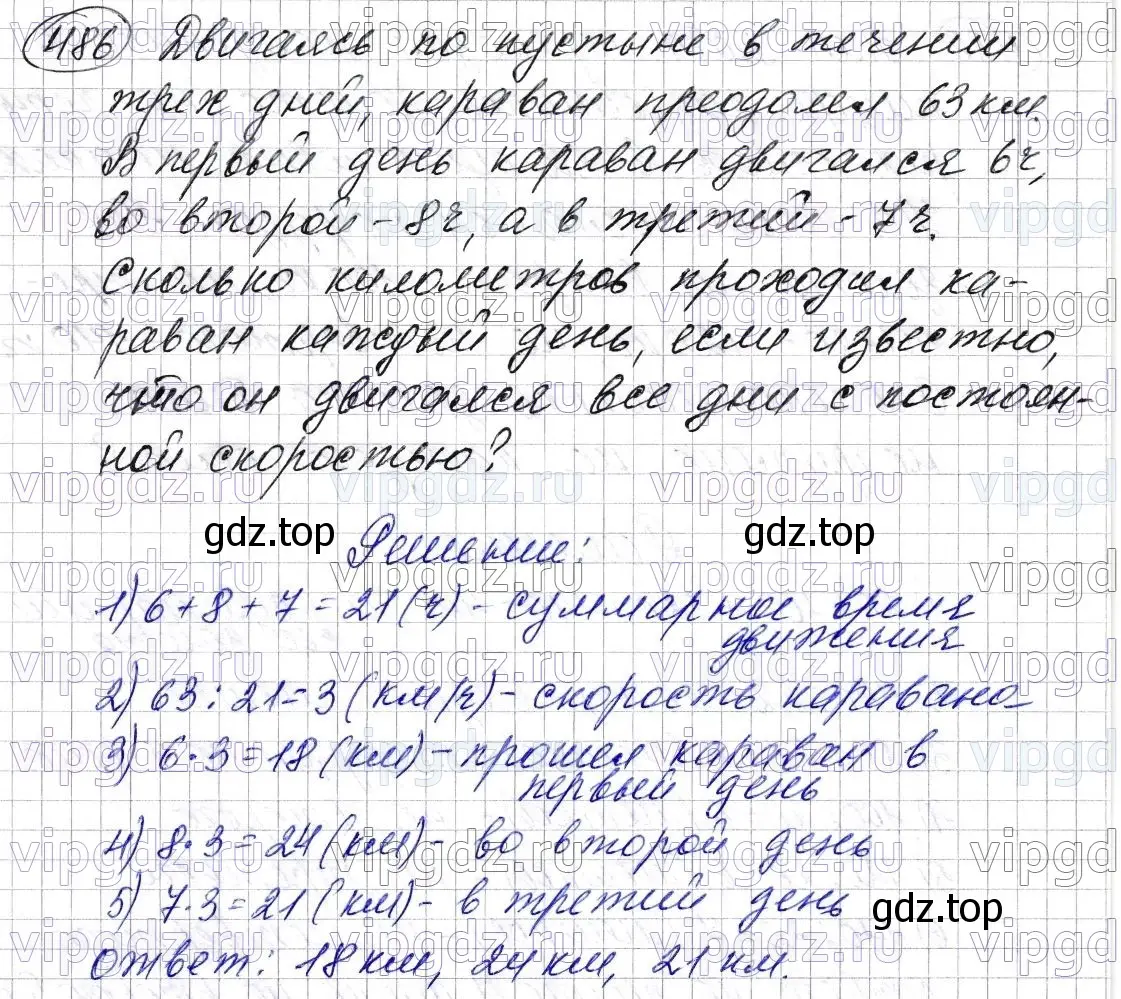 486 Двигаясь по пустыне в течении
трех дней, караван преодолел 63 км.
В первый день караван двигался 6ч,
во второй - 8ч, а в третий - 7ч.
Сколько километров проходил ка-
раван каждый день, если известно,
что он двигался все дни с постоян-
ной скоростью?
gdz.top Решение: gdz.top
1) 6 + 8 + 7 = 21 (ч) - суммарное время
движения
2) 63 : 21 = 3 (км/ч) - скорость каравана
3) 6 · 3 = 18 (км) - прошел караван в
первый день
4) 8 · 3 = 24 (км) - во второй день
5) 7 · 3 = 21 (км) - в третий день
gdz.top
Ответ: 18 км, 24 км, 21 км.